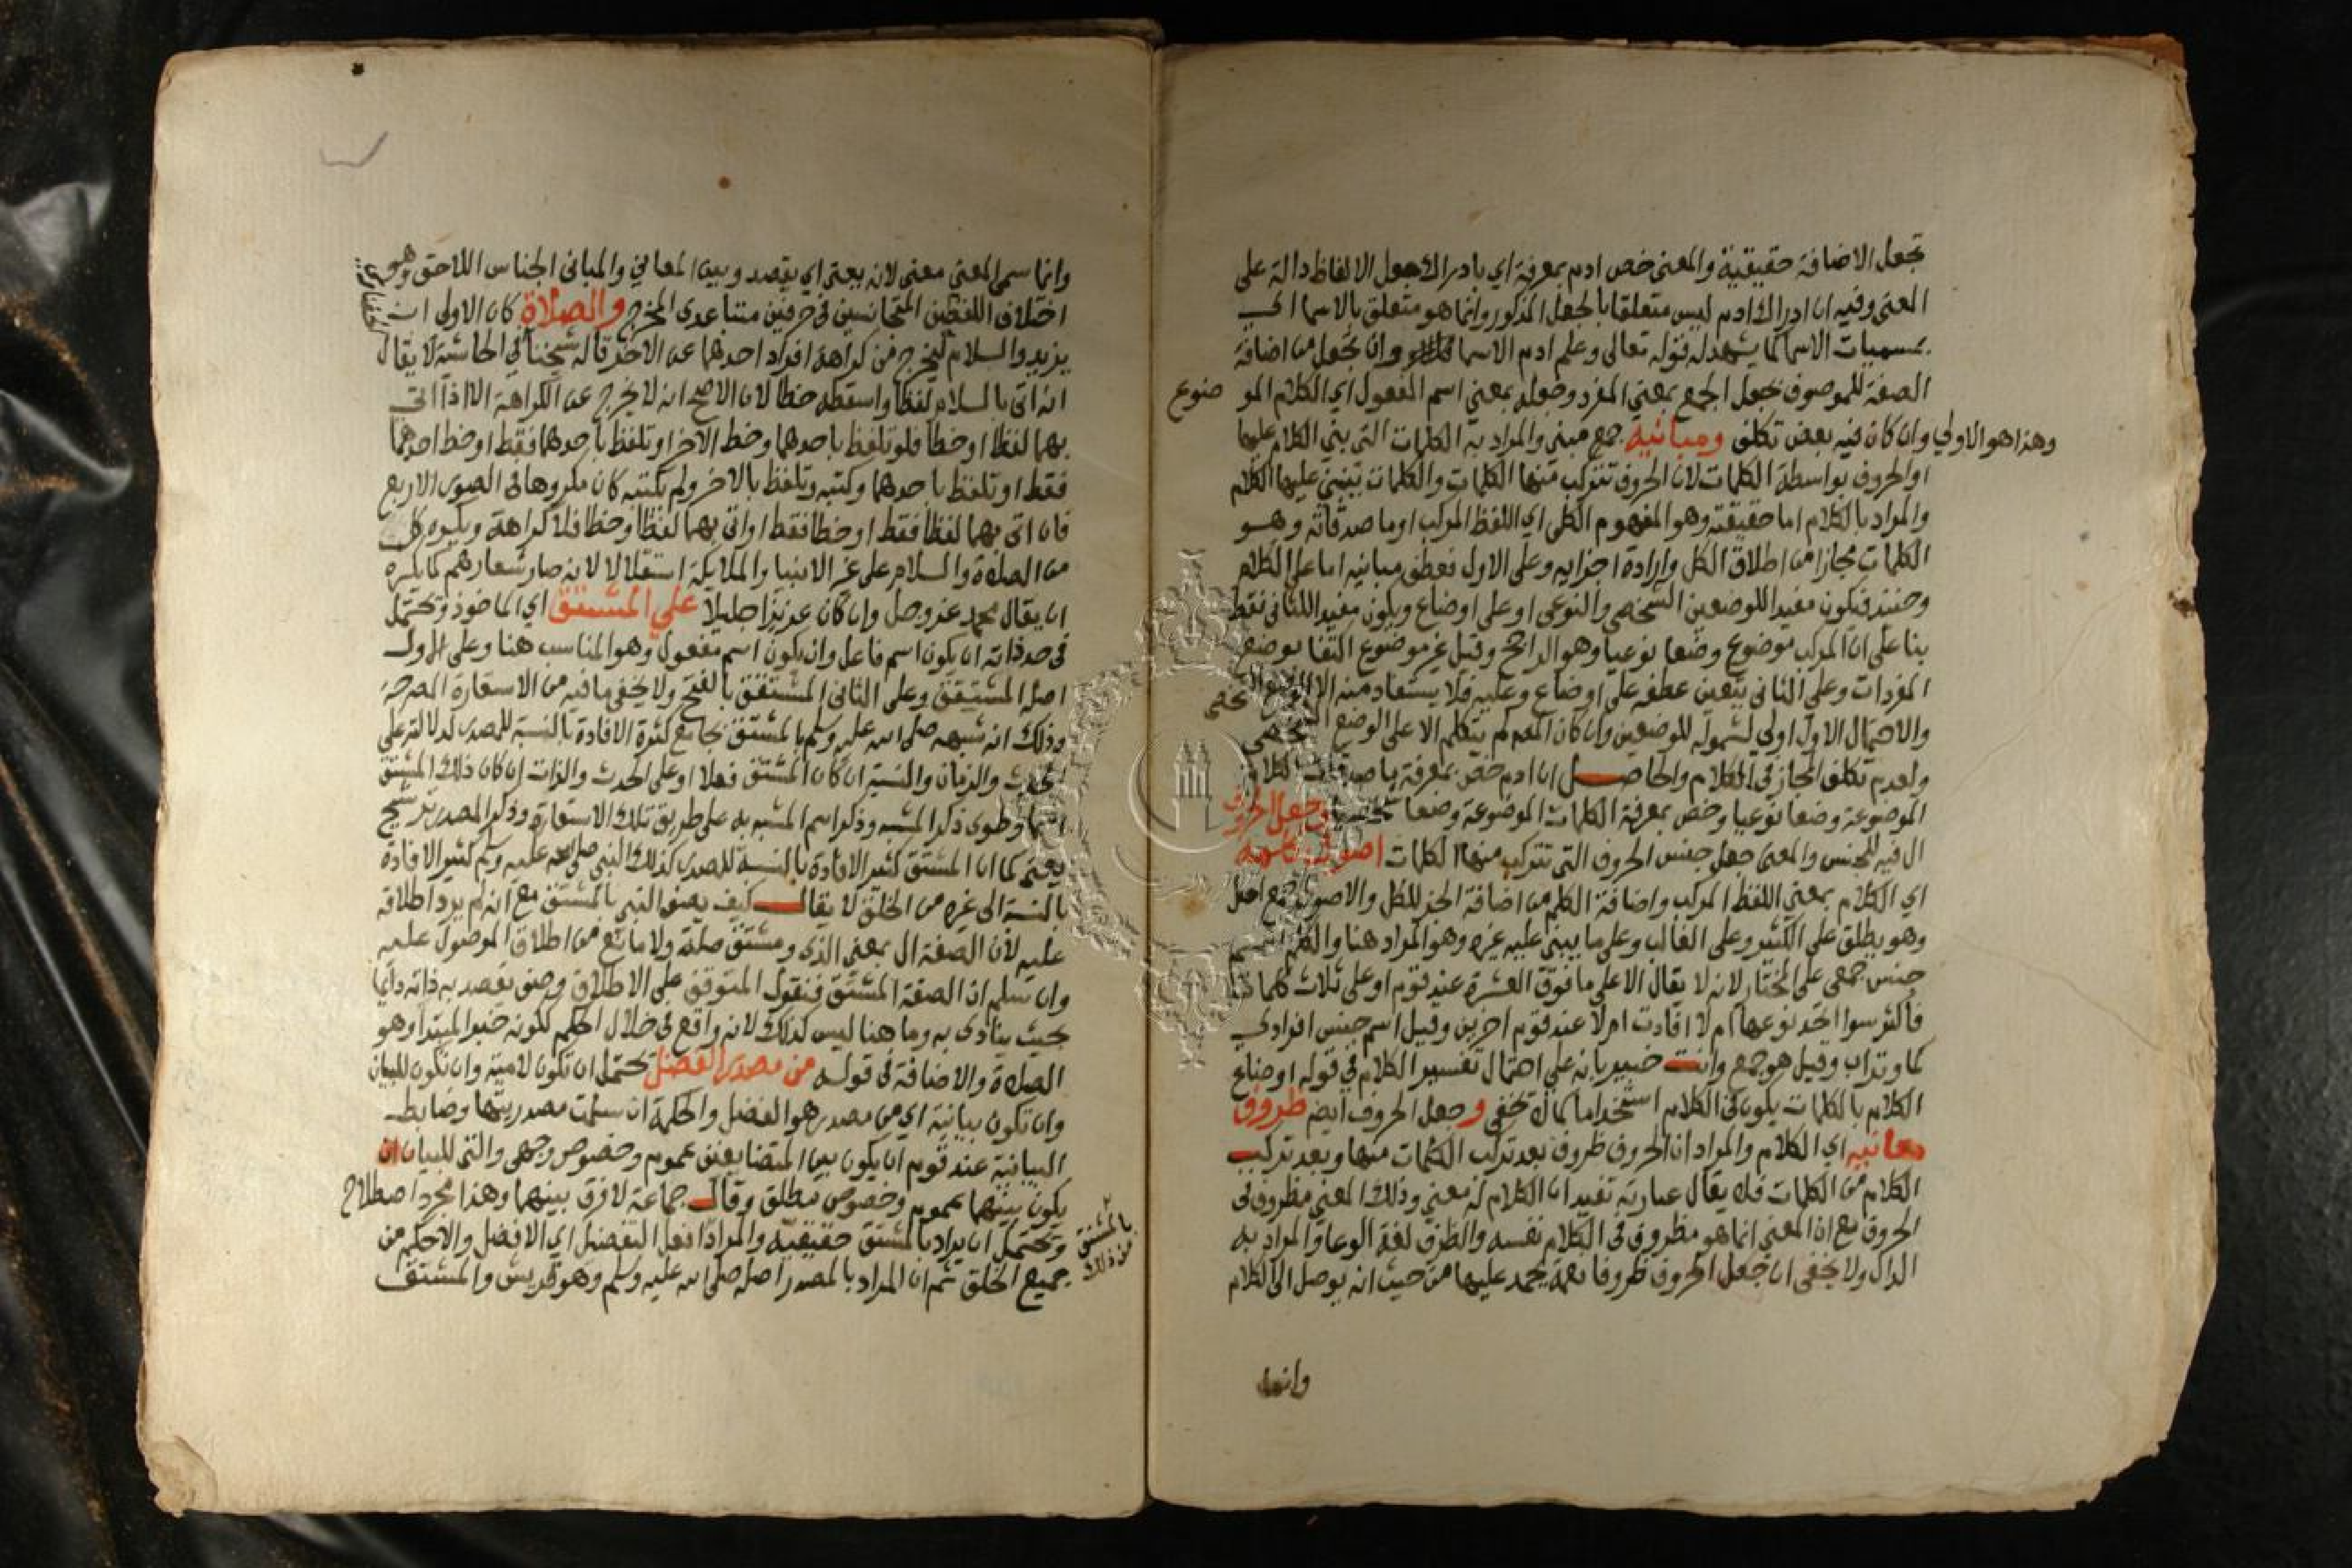 تجعل الاضافة حقيقية والمعنى خص ادم بمعرفة اي بادراك جعل الالفاظ دالة على
المعنى وفيه ان ادراك ادم ليس متعلقا بالجعل المذكور وانما هو متعلق بالاسما اي
بمسميات الاسما كما يشهد له قوله تعالى وعلم ادم الاسما وان تجعل من اضافة
الصفة للموصوف بجعل الجمع بمعنى المفرد وجعله بمعنى اسم المفعول اي الكلام المو ضوع
وهذا هو الاولي وان كان فيه بعض تكلف ومبانيه جمع مبنى والمراد به الكلمات التي بني الكلام عليها
او الحروف بواسطة الكلمات لان الحروف تتركب منها الكلمات والكلمات ينبني عليها الكلام
والمراد بالكلام اما حقيقته وهو المفهوم الكلي اي اللفظ المركب او ما صدقاته وهو
الكلمات مجازا من اطلاق الكل وارادة اجزايه وعلى الاول فعطف مبانيه اما على الكلام
وحينئذ فيكون مفيدا للوضعين الشخصي والنوعي او على اوضاع ويكون مفيدا للثاني فقط
بنا على ان المركب موضوع وضعا نوعيا وهو الراجح وقيل غير موضوع اكتفا بوضع
المفردات وعلى الثاني يتعين عطفه على اوضاع وعليه فلا يستفاد منه الا الوضع
والاحتمال الاول اولي لشموله للوضعين وان كان لم يتكلم الا على الوضع الشخصي
ولعدم تكلف المجاز في الكلام والحاصل ان ادم خص بمعرفة ما صدقات الكلام
الموضوعة وضعا نوعيا وخص بمعرفة الكلمات الموضوعة وضعا شخصيا وجعل الحروف
ال فيه للجنس والمعنى جعل جنس الحروف التي تتركب منها الكلمات اصول كلامه
اي الكلام بمعنى اللفظ المركب واضافة الكلم من اضافة الجز للكل والاصول جمع اصل
وهو يطلق على الكثير وعلى الغالب وعلى ما يبنى عليه غيره وهو المراد هنا والكلم اسم
جنس جمعي على المختار لانه لا يقال الا على ما فوق العشرة عند قوم او على ثلاث كلمات
فاكثر سوا اتحد نوعها ام لا افادت ام لا عند قوم اخرين وقيل اسم جنس افرادي
كما وتراب وقيل هو جمع وانت خبير بانه على احتمال تفسير الكلام في قوله اوضاع
الكلام بالكلمات يكون في الكلام استخداما كما لا يخفى و جعل الحروف ايض ظروف
معانيه اي الكلام والمراد ان الحروف ظروف بعد تركب الكلمات منها وبعد تركب
الكلام من الكلمات فلا يقال عبارته تفيد ان الكلام له معنى وذلك المعنى مظروف في
الحروف مع ان المعنى انما هو مظروف في الكلام نفسه والظرف لغة الوعا والمراد به
الدال ولا يخفى ان جعل الحروف ظروفا نعمة يحمد عليها من حيث انه يوصل الى الكلام
وانما
وانما سمى المعنى معنى لانه يعنى اي يقصد وبين المعاني والمباني الجناس اللاحق وهو
اختلاف اللفظين المتجانسين في حرفين متباعدي المخرج والصلاة كان الاولى ان
يزيد والسلام ليخرج من كراهة افراد احدهما عن الاخر قاله شيخنا في الحاشية لا يقال
انه اتى بالسلام لفظا واسقطه خطا لان الاصح انه لا يخرج عن الكراهة الا اذا اتى
بهما لفظا او خطا فلو تلفظ باحدهما وخط الاخر او تلفظ باحدهما فقط او خط احدهما
فقط او تلفظ باحدهما وكتبه وتلفظ بالاخر ولم يكتبه كان مكروها في الصور الاربع
فان اتى بهما لفظا فقط او خطا فقط او اتى بهما لفظا وخطا فلا كراهة ويكره كل
من الصلاة والسلام على غير الانبيا والملايكة استقلالا لانه صار شعارهم كما يكره
ان يقال محمد عز وجل وان كان عزيزا جليلا على المشتق اي الماخوذ وتحتمل
في حد ذاته ان يكون اسم فاعل وان يكون اسم مفعول وهو المناسب هنا وعلى الاول
اصله المشتقق وعلى الثاني المشتقق بالفتح ولا يخفى ما فيه من الاستعارة المصرحة
وذلك انه شبهه صلى الله عليه وسلم بالمشتق بجامع كثرة الافادة بالنسبة للمصدر لدلالته على
الحدث والزمان والنسبة ان كان المشتق فعلا او على الحدث والذات ان كان ذلك المشتق
اسما وطوى ذكر المشبه وذكر اسم المشبه به على طريق تلك الاستعارة وذكر المصدر ترشيح
يعني كما ان المشتق كثير الافادة بالنسبة للمصدر كذلك النبي صلى الله عليه وسلم كثير الافادة
بالنسبة الى غيره من الخلق لا يقال كيف يصف النبي بالمشتق مع انه لم يرد اطلاقه
عليه لان الصفة ال بمعنى الذي ومشتق صلة ولا مانع من اطلاق الموصول عليه
وان سلم ان الصفة المشتق فنقول المتوقف على الاطلاق وصف يقصد به ذاته دايما
بحيث ينادى به وما هنا ليس كذلك لانه واقع في خلال الحكم لكونه خبر المبتدا وهو
الصلاة والاضافة في قوله من مصدر الفضل تحتمل ان تكون لامية وان تكون للبيان
وان تكون بيانية اي من مصدر هو الفضل والحكمة ان سلمت مصدريتها وضابط
البيانية عند قوم ان يكون بين المتضايفين عموم وخصوص وجهي والتي للبيان ان
يكون بينهما عموم وخصوص مطلق وقال جماعة لا فرق بينهما وهذا مجرد اصطلاح
وتحتمل ان يراد بالمشتق حقيقته والمراد افعل التفضيل اي الافضل والاحكم من
بالمشتق من ذلك
جميع الخلق ثم ان المراد بالمصدر اصله صلى الله عليه وسلم وهو قريش والمشتق